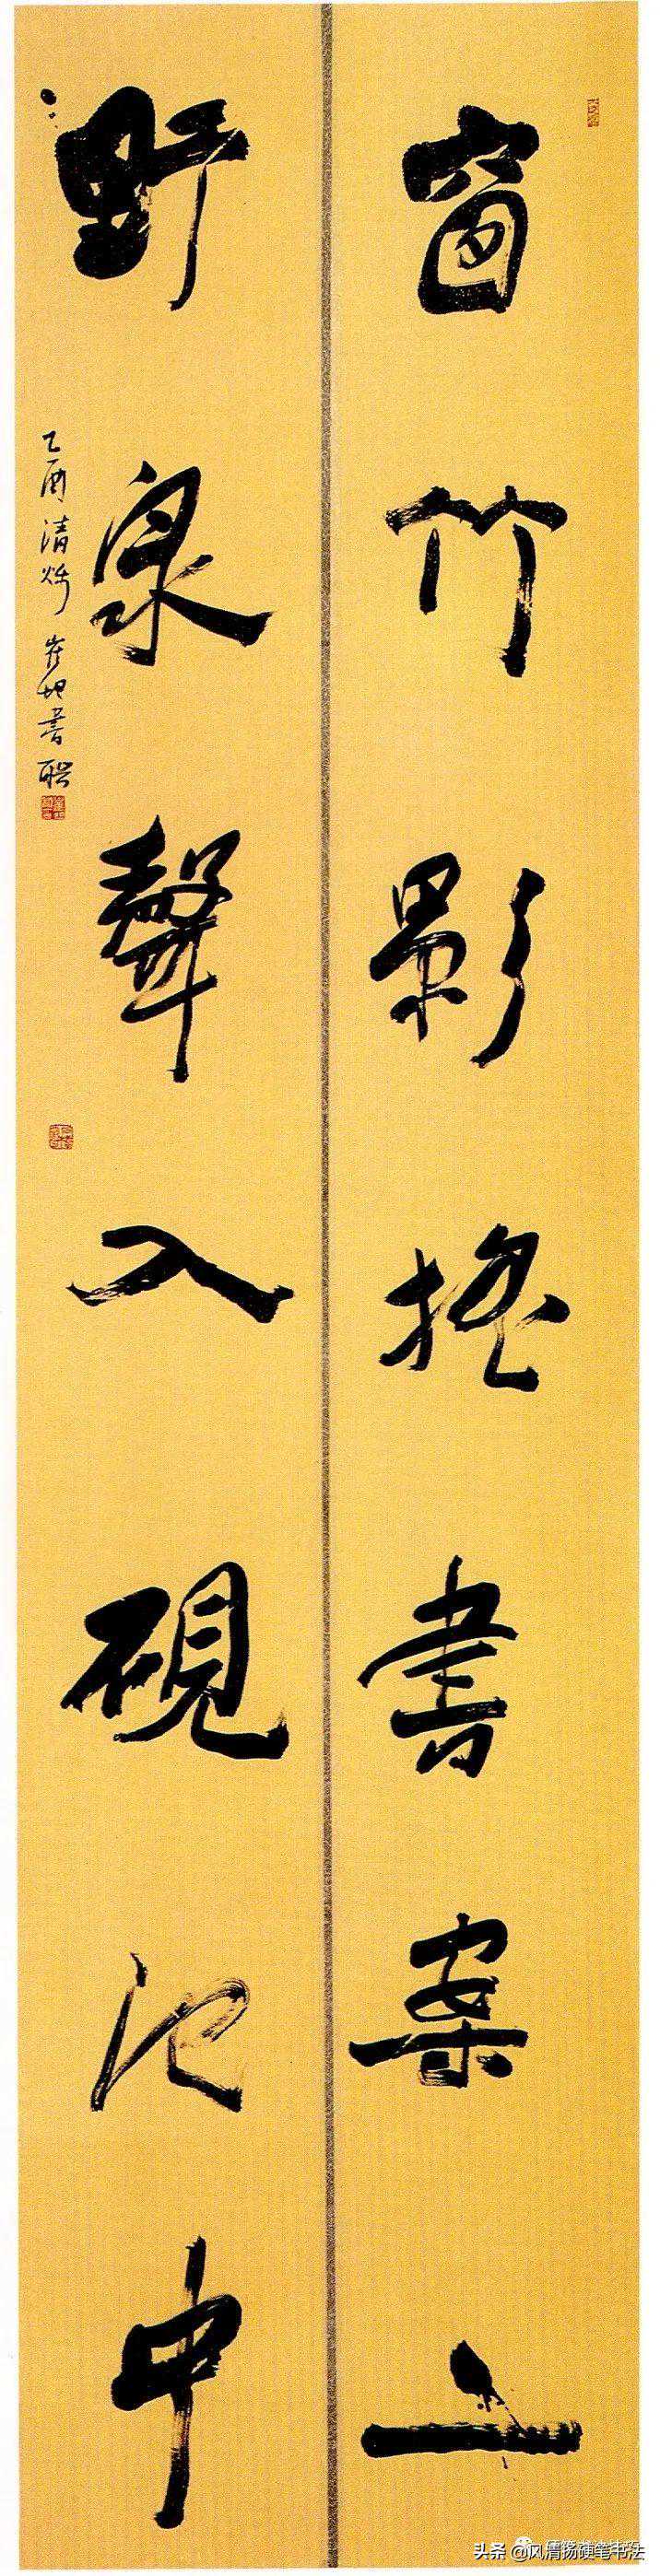 窗竹影搖書案上
野泉聲入硯池中
乙酉清秋崔地書聯
头条 @风清扬硬笔书法